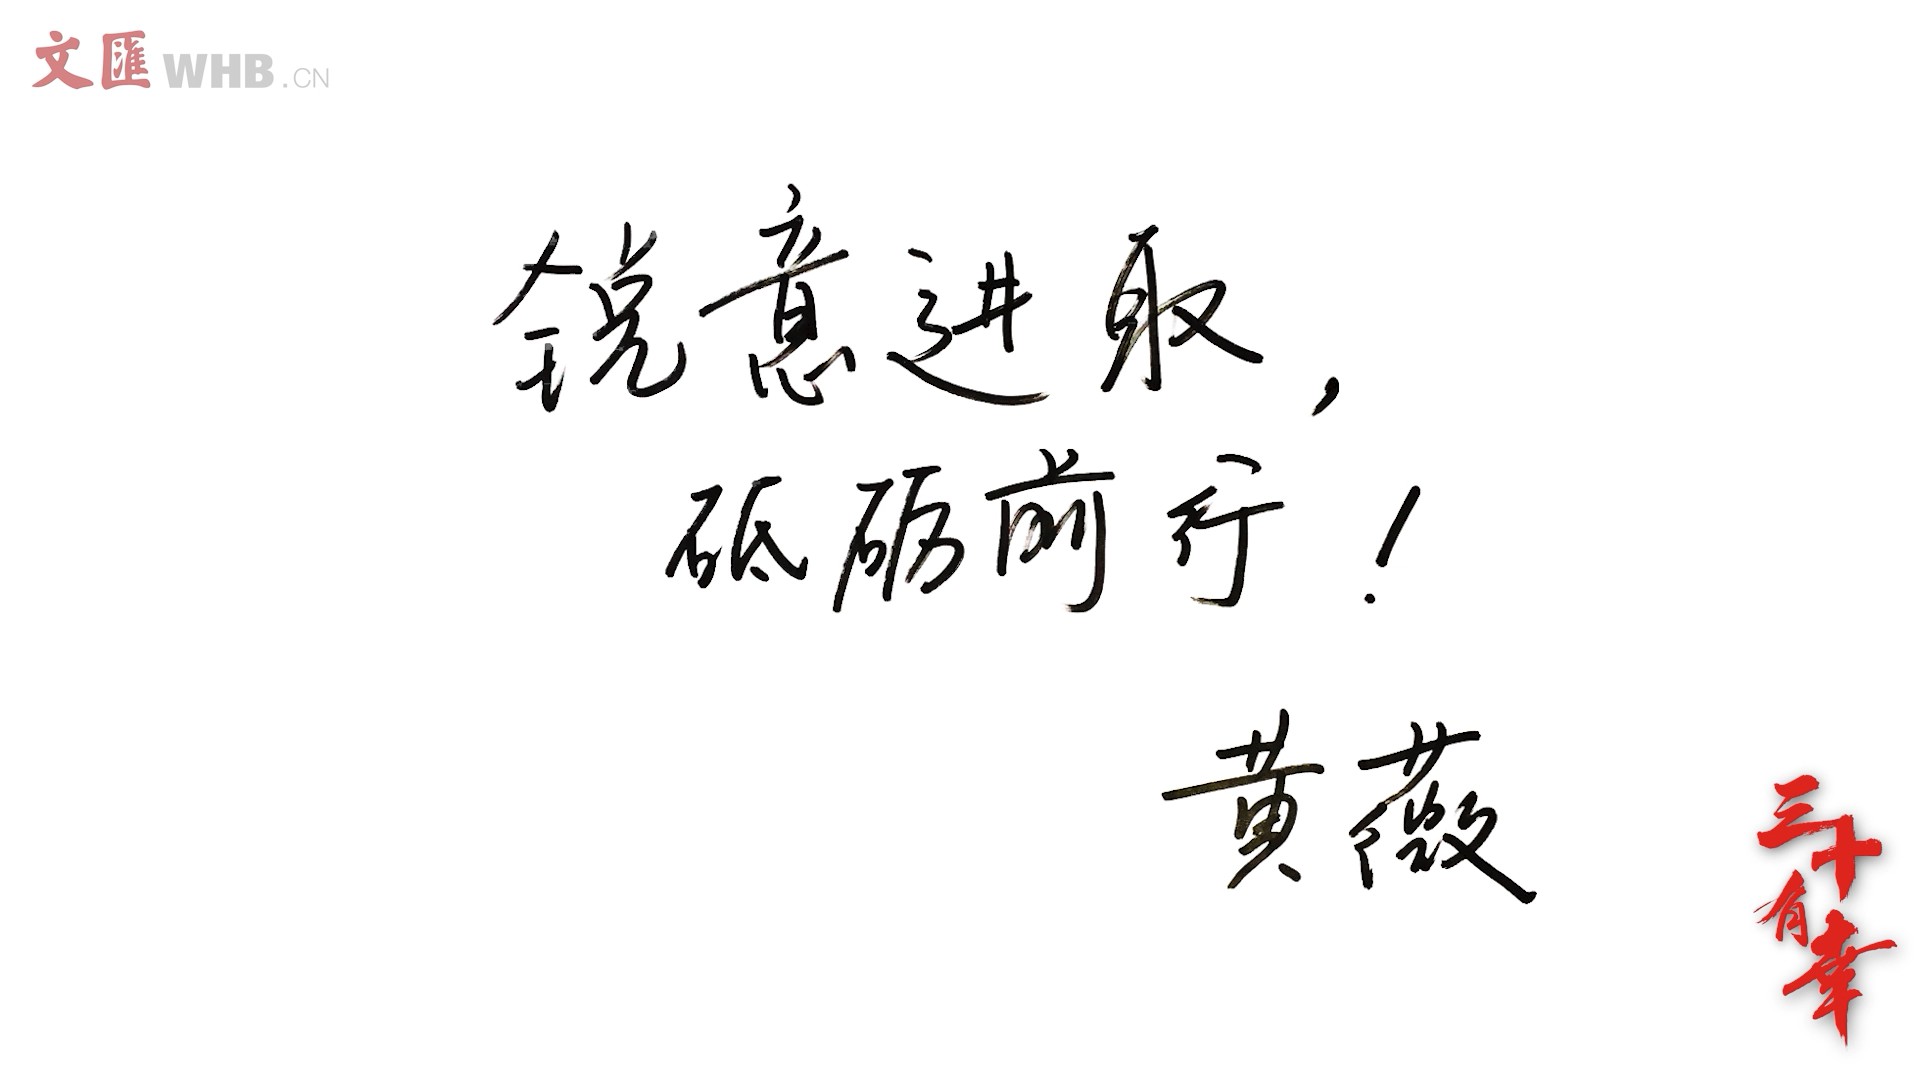 文匯 WHB.CN
锐意进取，
砥砺前行！
黄薇
三十
有幸